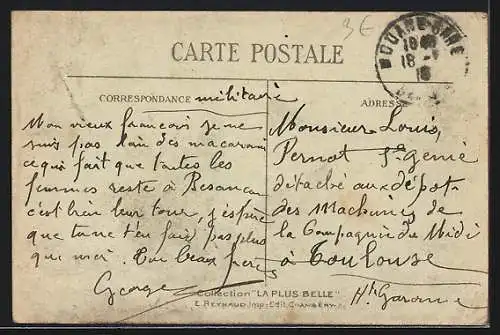 3 E
CARTE POSTALE
CORRESPONDANCE militaire
ADRESSE
Mon vieux francois je ne
suis pas loin des macaroni
ce qui fait que toutes les
femmes reste à Besancon
c'est bien leur tour, j'espère
que tu ne t'en fait pas plus
que moi. Ton beau frère
George
Monsieur Louis
Pernot Genie
détaché aux dépot
des Machines de
la Compagnie du Midi
à Toulouse
Hte Garonne
Collection "LA PLUS BELLE"
E. REYNAUD Imp. Edit. CHAMBERY